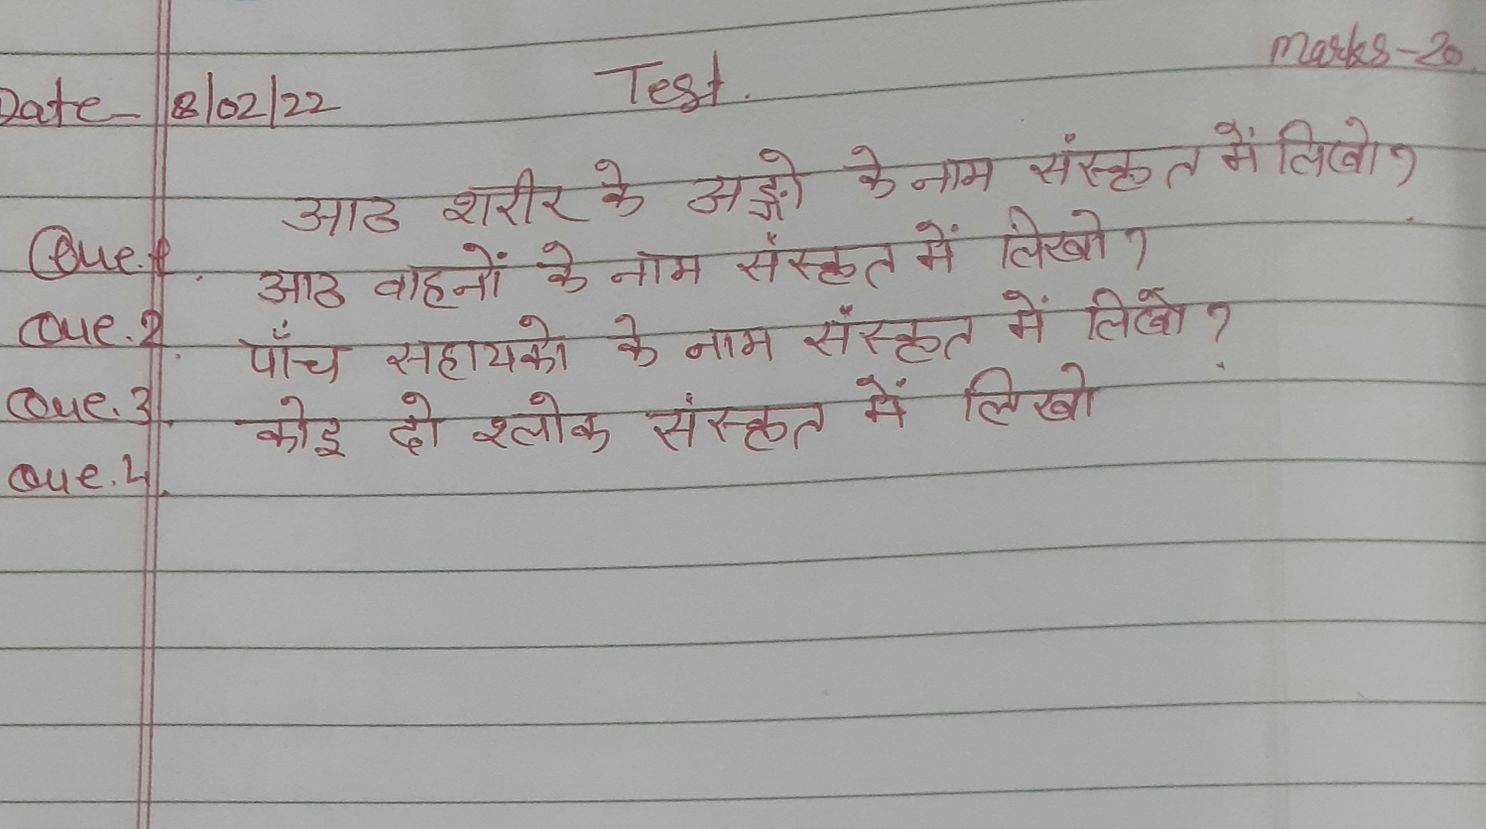 Marks-20
Date- 8/02/22 Test.
Que.1. आठ शरीर के अङ्गो के नाम संस्कृत में लिखो?
Que.2. आठ वाहनों के नाम संस्कृत में लिखो?
Que.3. पाँच सहायको के नाम संस्कृत में लिखो?
Que.4. कोइ दो श्लोक संस्कृत में लिखो